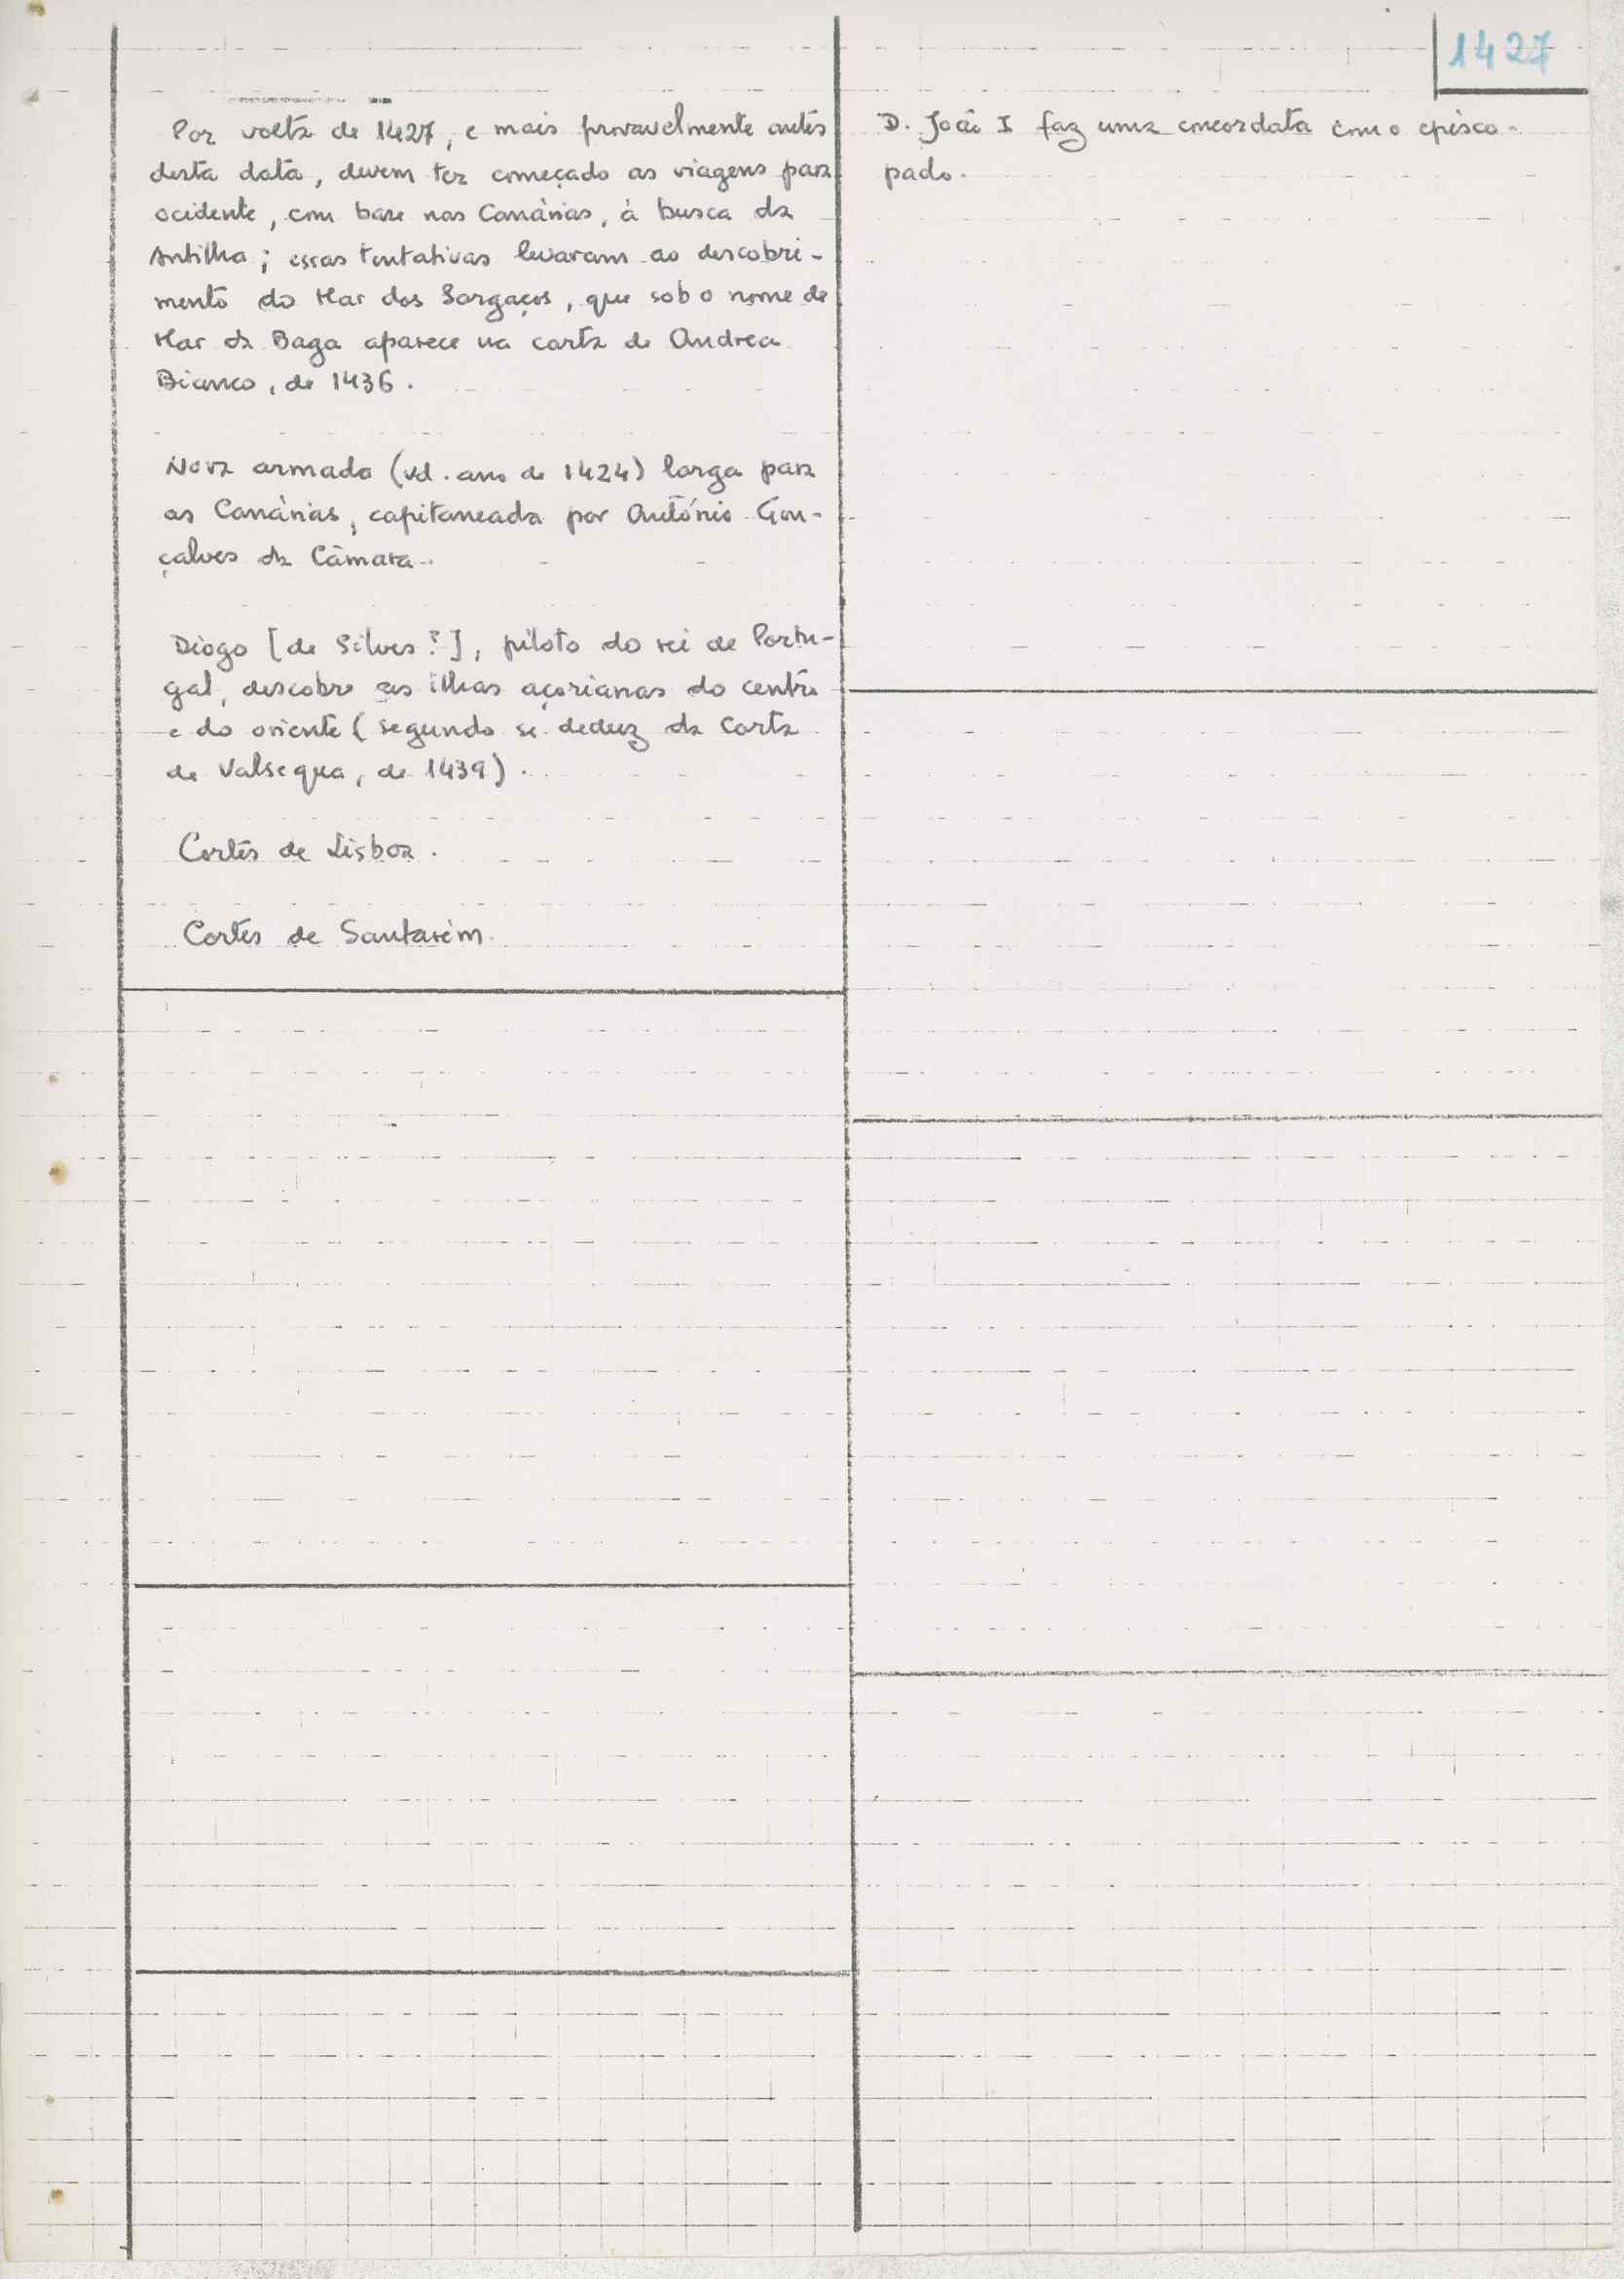 1427
Por volta de 1427, e mais provavelmente antes
desta data, devem ter começado as viagens para
ocidente, com base nas Canárias, à busca da
Antilha; essas tentativas levaram ao descobri-
mento do Mar dos Sargaços, que sob o nome de
Mar da Baga aparece na carta de Andrea
Bianco, de 1436.
Nova armada (vd. ano de 1424) larga para
as Canárias, capitaneada por António Gon-
çalves da Câmara.
Diogo [de Silves?], piloto do rei de Portu-
gal, descobre as ilhas açorianas do centro
e do oriente (segundo se deduz da carta
de Valsequa, de 1439).
Cortes de Lisboa.
Cortes de Santarém.
D. João I faz uma concordata com o episco-
pado.